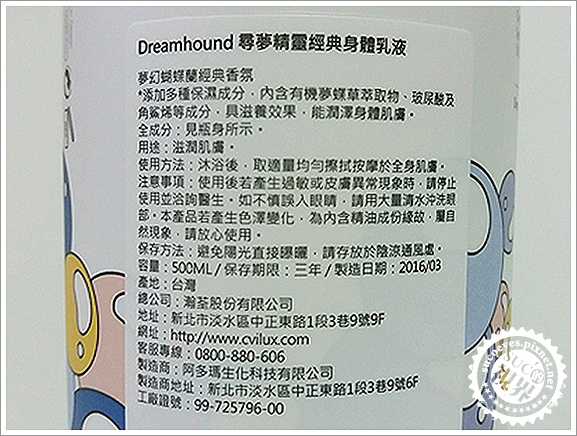 Dreamhound 尋夢精靈經典身體乳液
夢幻蝴蝶蘭經典香氛
*添加多種保濕成分，內含有機夢蝶草萃取物、玻尿酸及
角鯊烯等成分，具滋養效果，能潤澤身體肌膚。
全成分：見瓶身所示。
用途：滋潤肌膚。
使用方法：沐浴後，取適量均勻擦拭按摩於全身肌膚。
注意事項：使用後若產生過敏或皮膚異常現象時，請停止
使用並洽詢醫生。如不慎誤入眼睛，請用大量清水沖洗眼
部。本產品若產生色澤變化，為內含精油成份緣故，屬自
然現象，請放心使用。
保存方法：避免陽光直接曝曬，請存放於陰涼通風處。
容量：500ML / 保存期限：三年 / 製造日期：2016/03
產地：台灣
總公司：瀚荃股份有限公司
地址：新北市淡水區中正東路1段3巷9號9F
網址：http://www.cvilux.com
客服專線：0800-880-606
製造商：阿多瑪生化科技有限公司
製造商地址：新北市淡水區中正東路1段3巷9號6F
工廠證號：99-725796-00